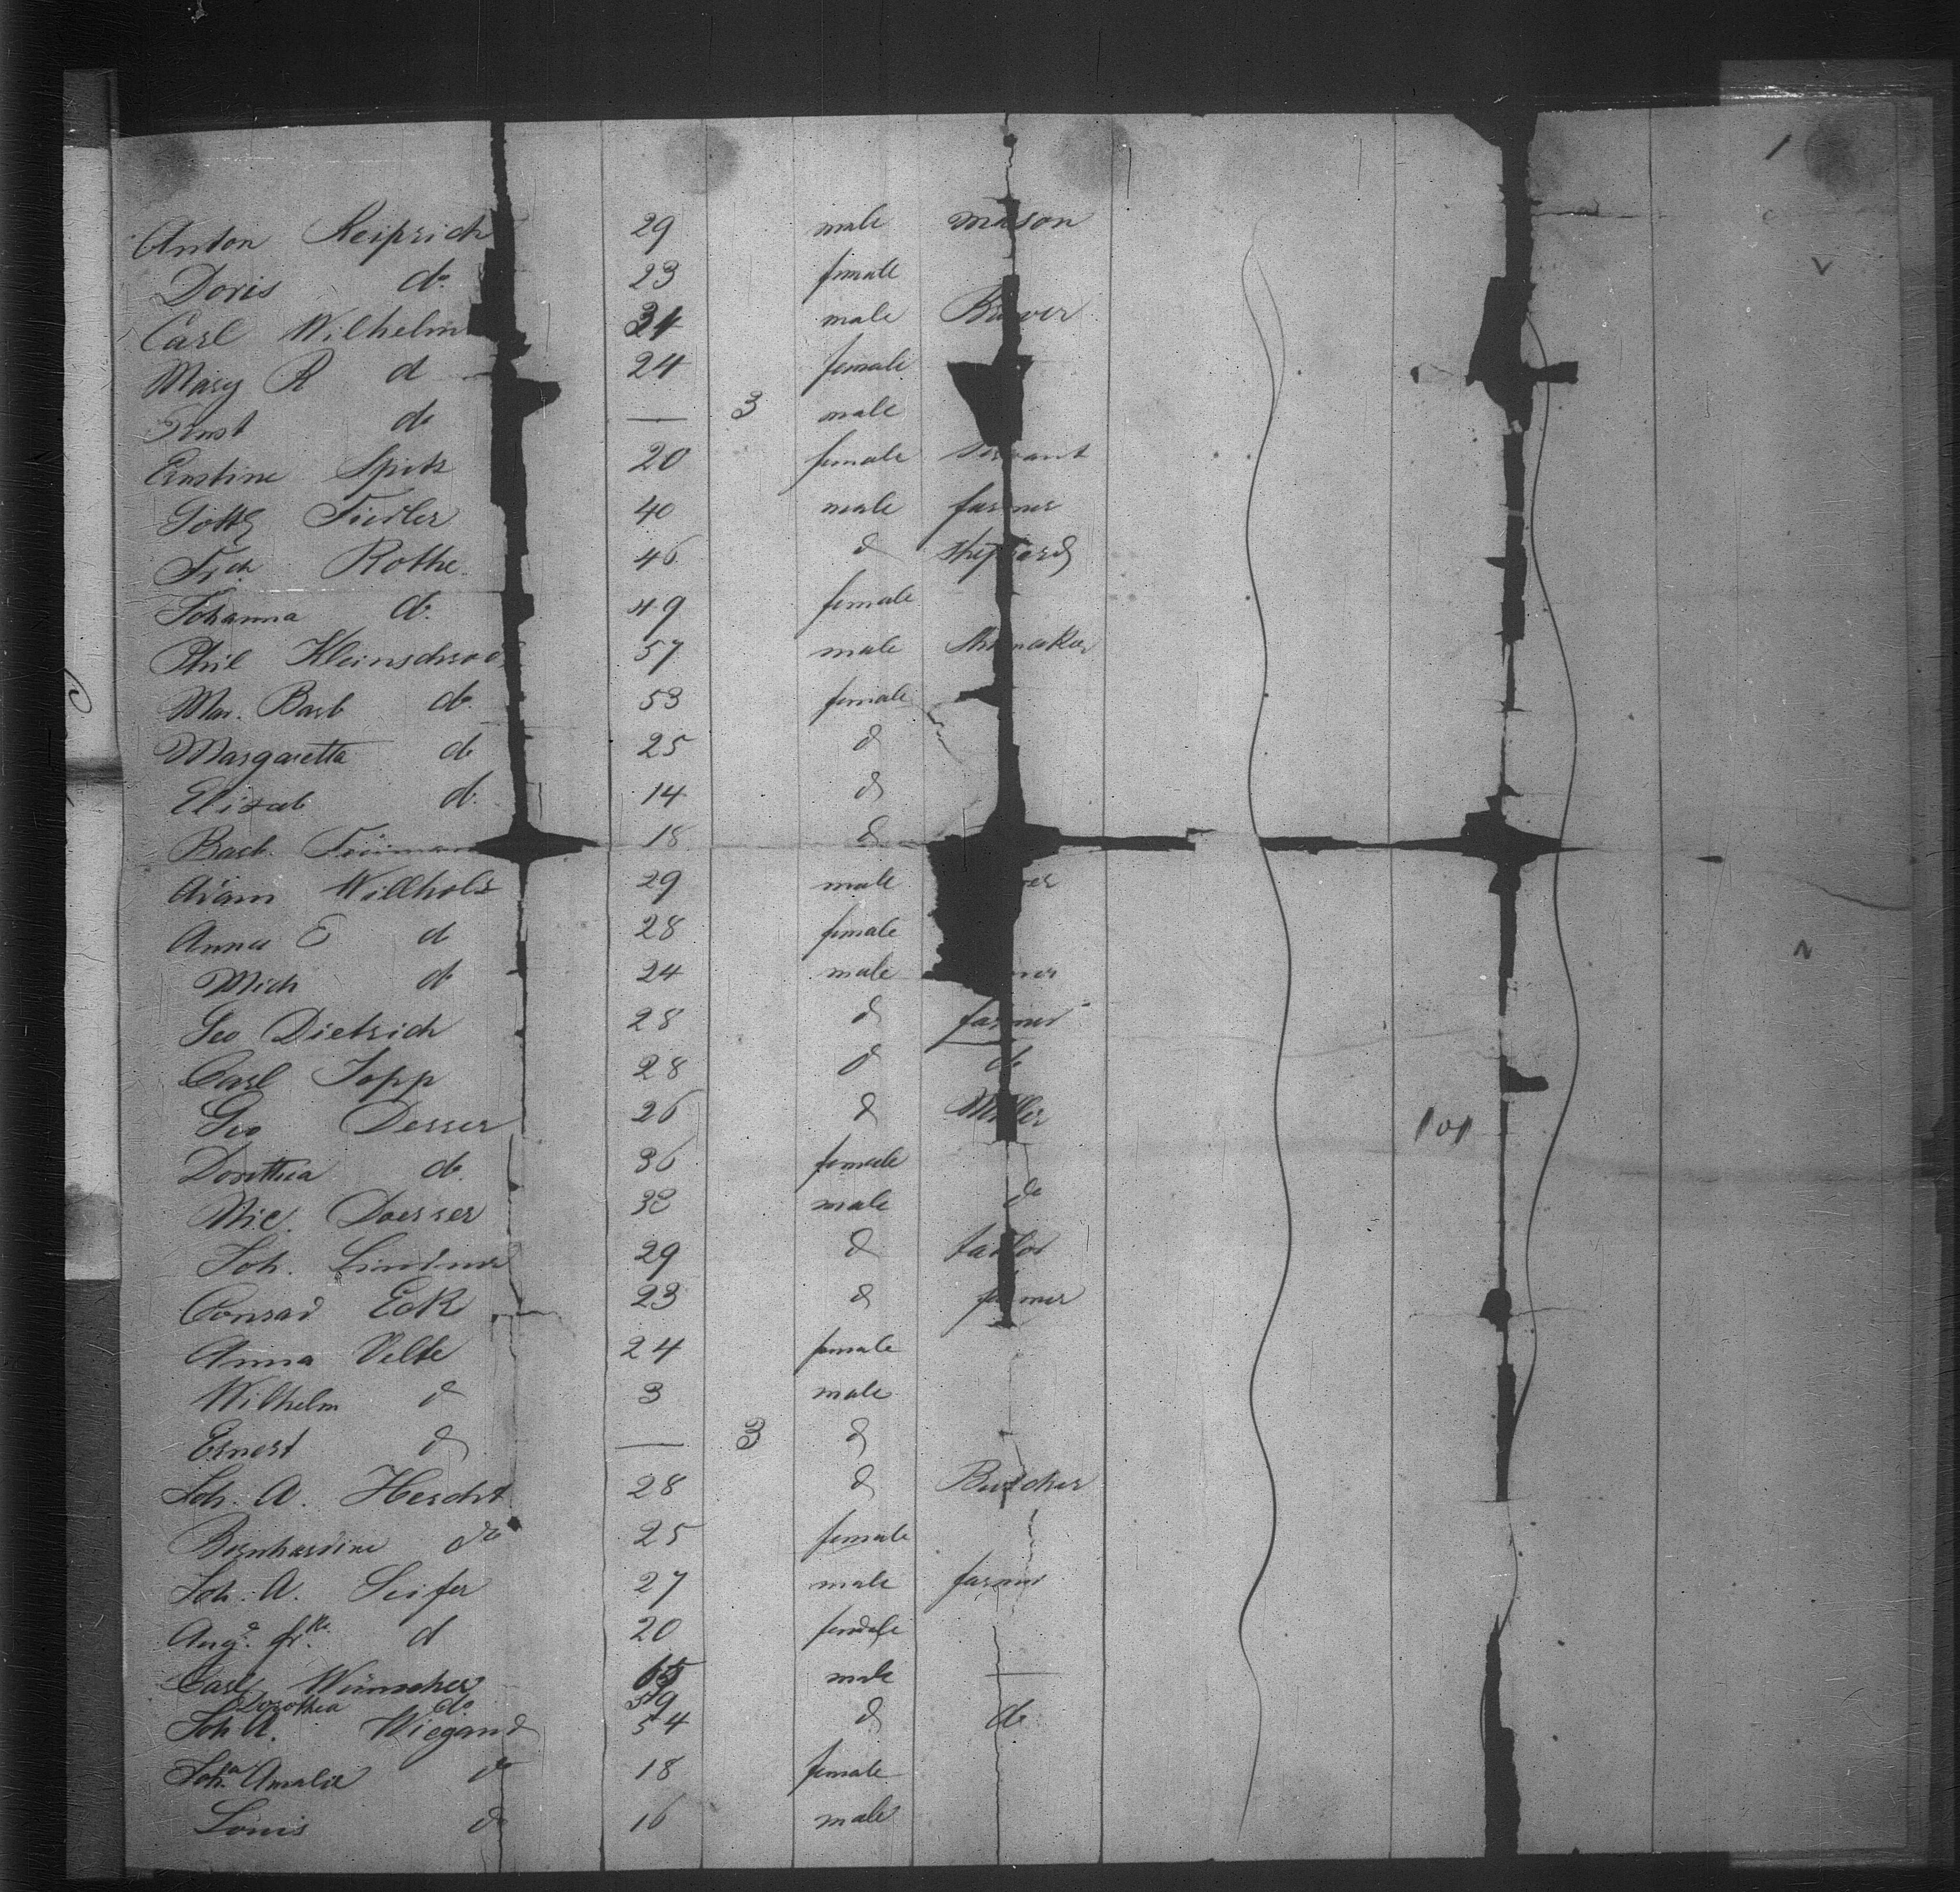 Anton Reiprich 29 male mason
Doris do 23 female
Carl Wilhelm 34 male Brewer
Mary R do 24 female
Ernst do — 3 male
Ernstine Spitz 20 female servant
Gottl Fiedler 40 male farmer
Frdch Rothe 46 do Shepherd
Johanna do 49 female
Phil Kleinschrod 57 male Shoemaker
Mar. Barb do 53 female
Margaretta do 25 do
Elisab do 14 do
Barb. 18 do
Adam Willholz 29 male
Anna E do 28 female
Mich do 24 male
Geo Dietrich 28 do farmer
Carl Jopp 28 do do
Geo Desser 26 do Miller
Dorothea do 36 female
Nic. Doesser 32 male do
Joh. Lindner 29 do tailor
Conrad Eck 23 do farmer
Anna Velte 24 female
Wilhelm do 3 male
Ernest do — 3 do
Joh. A. Herdst 28 do Butcher
Bernhardine do 25 female
Joh. A. Seifer 27 male farmer
Aug. do 20 female
Carl Wünscher 65 male —
Dorothea do 59
Joh A. Wiegand 54 do do
Joha Amalie do 18 female
Louis do 16 male
101